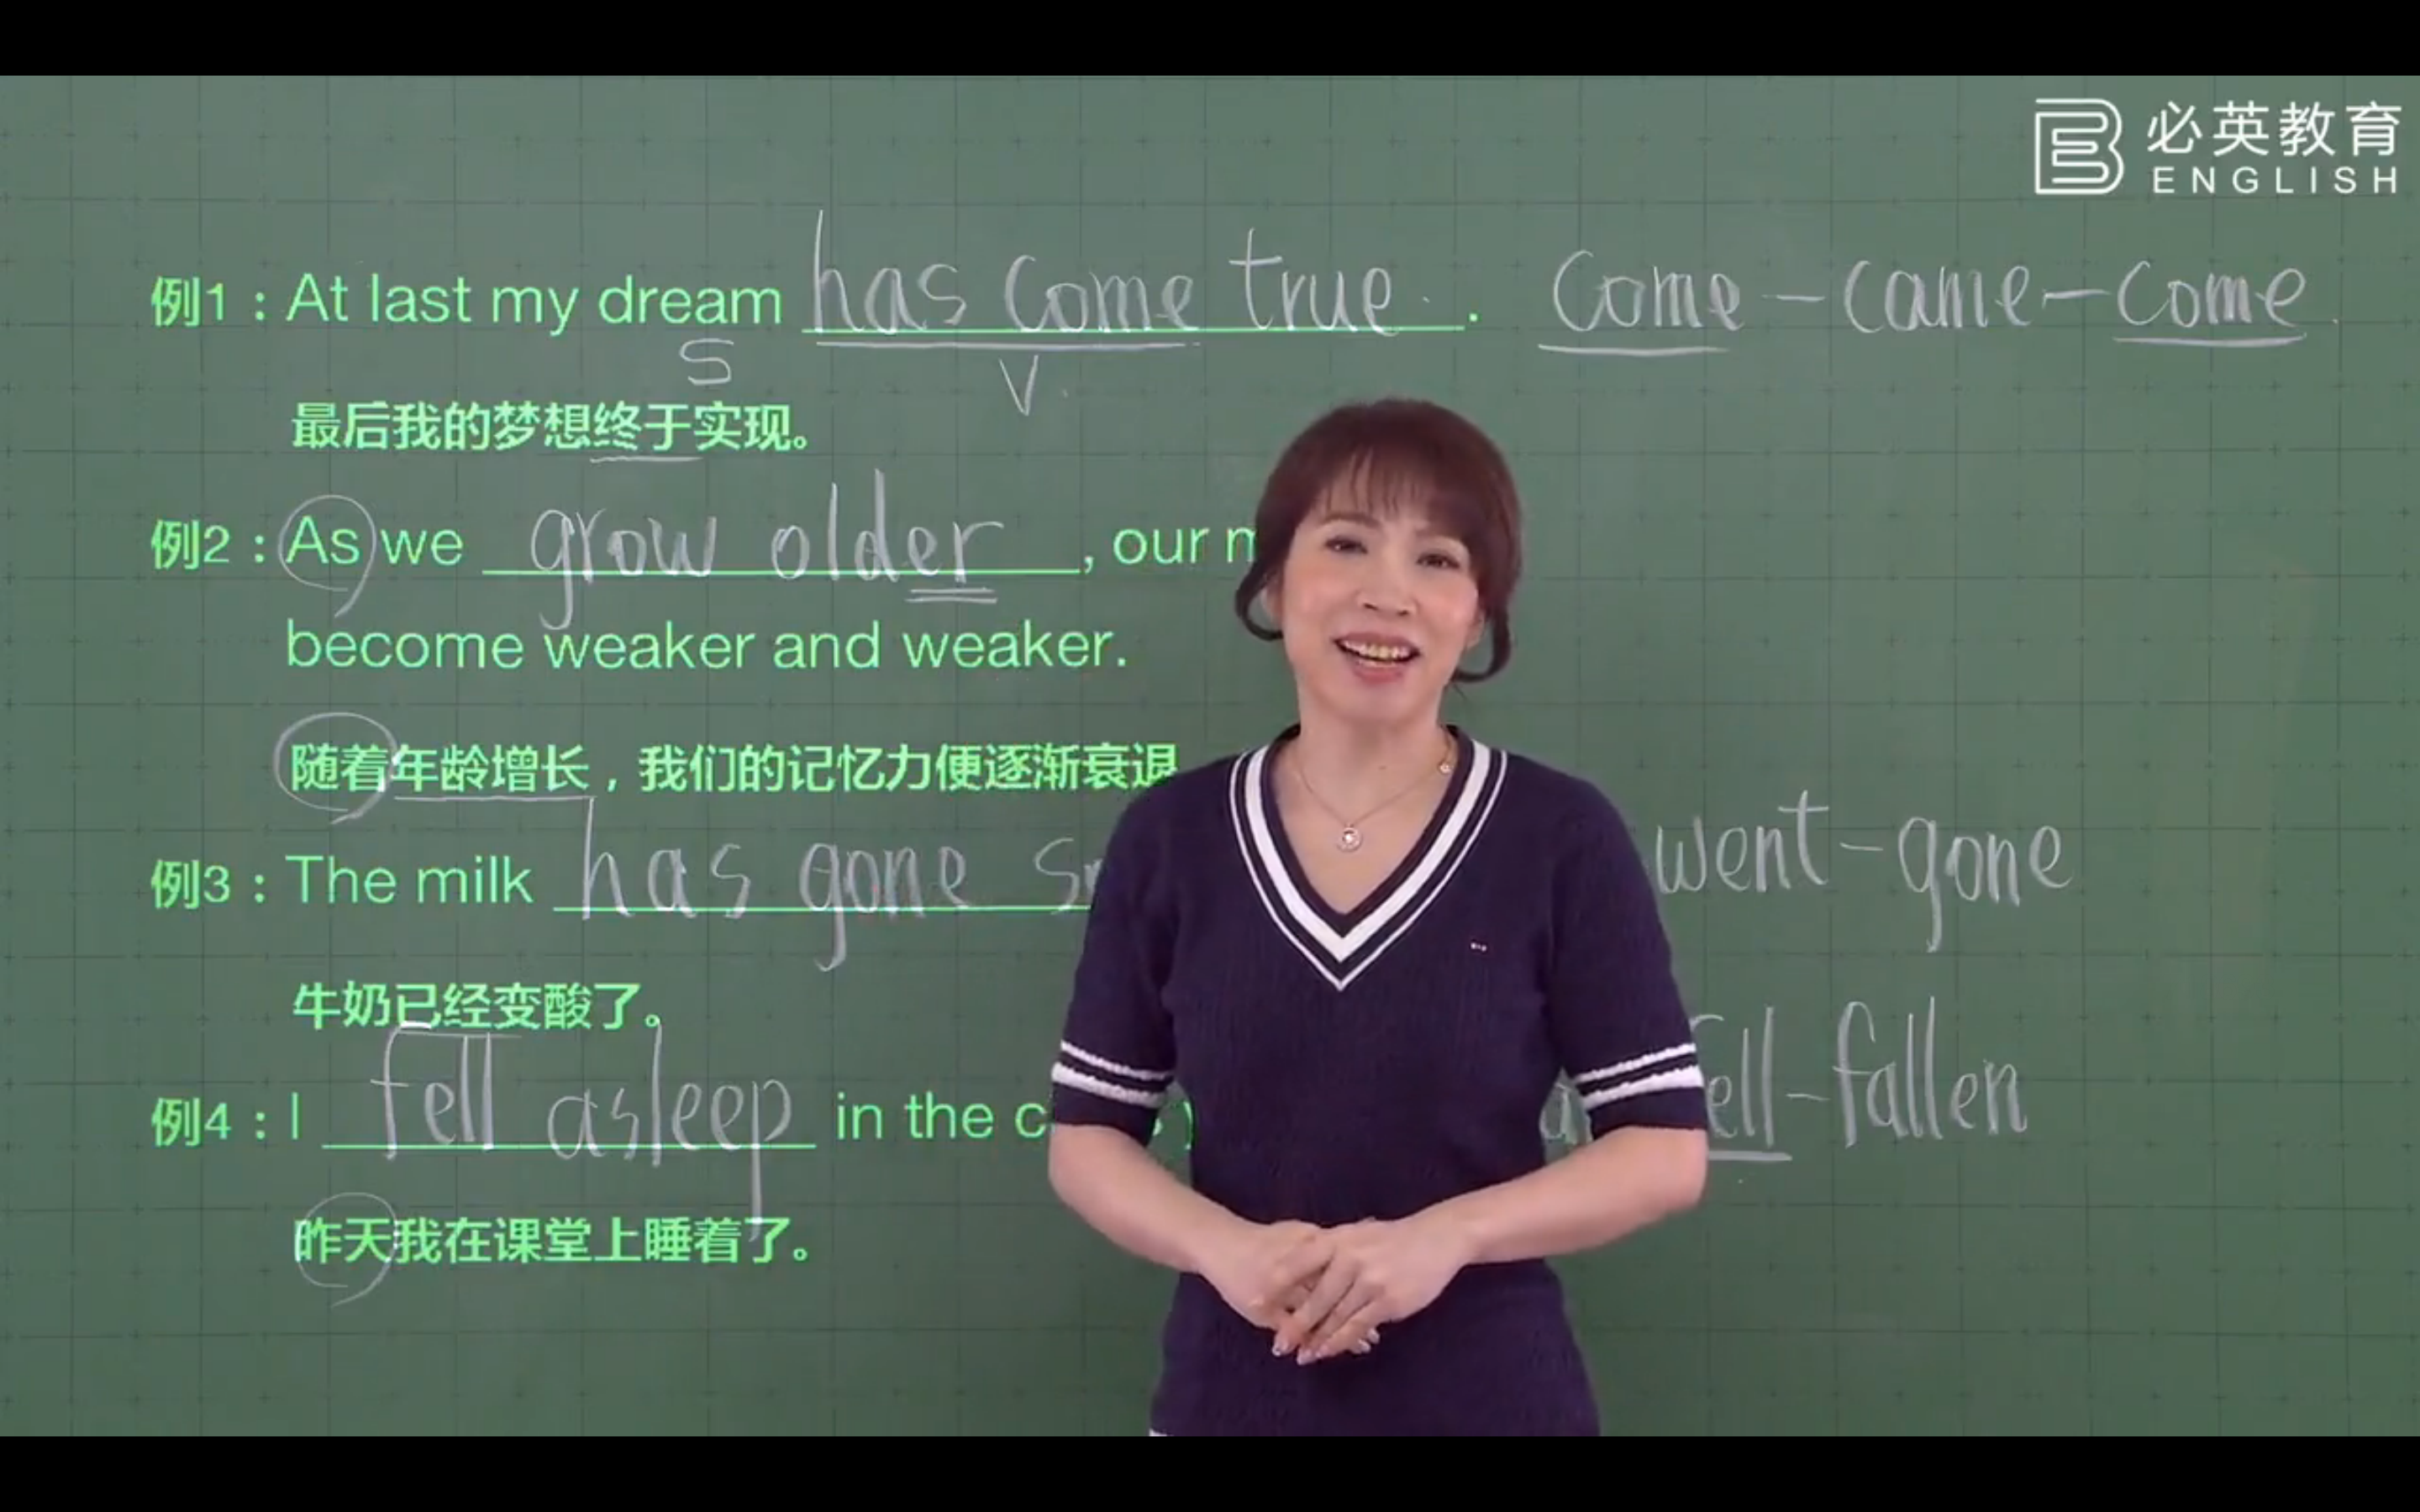 必英教育
ENGLISH
例1：At last my dream has come true. come-came-come.
S V.
最后我的梦想终于实现。
例2：As we grow older, our
become weaker and weaker.
随着年龄增长，我们的记忆力便逐渐衰退
例3：The milk has gone went-gone
牛奶已经变酸了。
例4：I fell asleep in the fell-fallen
昨天我在课堂上睡着了。